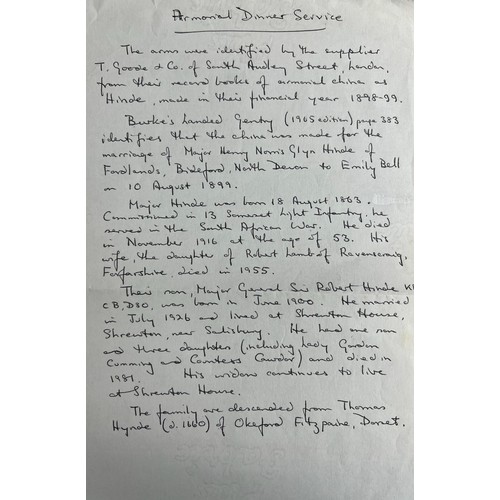 Armorial Dinner Service
The arms were identified by the supplier
T. Goode & Co. of South Audley Street, London,
from their record books of armorial china as
Hinde, made in their financial year 1898-99.
Burke's Landed Gentry (1965 edition) page 383
identifies that the china was made for the
marriage of Major Henry Norris Glyn Hinde of
Fordlands, Bideford, North Devon to Emily Bell
on 10 August 1899.
Major Hinde was born 18 August 1863.
Commissioned in 13 Somerset Light Infantry, he
served in the South African War. He died
in November 1916 at the age of 53. His
wife, the daughter of Robert Lamb of Ravenscraig,
Forfarshire, died in 1955.
Their son, Major General Sir Robert Hinde
CB, DSO, was born in June 1900. He married
in July 1926 and lived at Shrewton House,
Shrewton, near Salisbury. He had one son
and three daughters (including Lady Gordon
Cumming and Countess Cawdor) and died in
1981. His widow continues to live
at Shrewton House.
The family are descended from Thomas
Hynde (d. 1660) of Okeford Fitzpaine, Dorset.